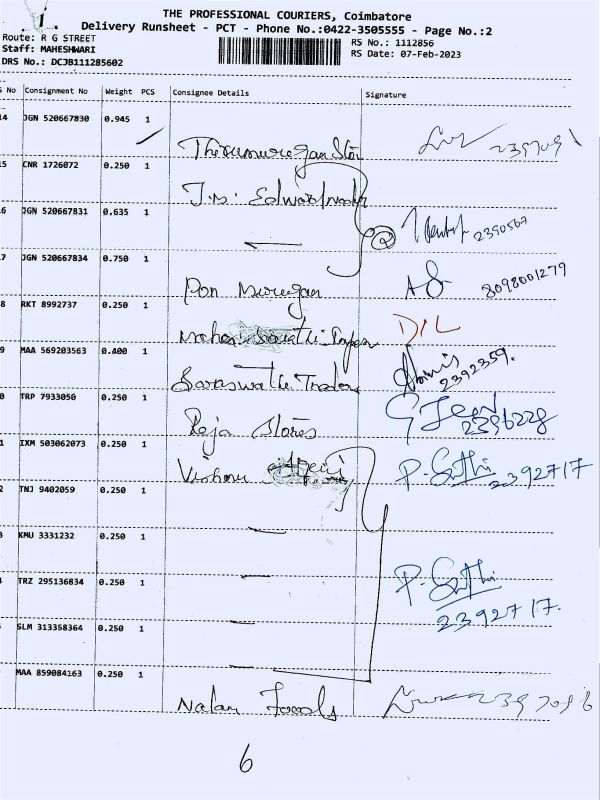 THE PROFESSIONAL COURIERS, Coimbatore
Delivery Runsheet - PCT - Phone No.:0422-3505555 - Page No.:2
Route: R G STREET
Staff: MAHESHWARI
DRS No.: DCJB111285602
RS No.: 1112856
RS Date: 07-Feb-2023
S No Consignment No Weight PCS Consignee Details Signature
14 JGN 520667830 0.945 1
Thirumurugan 
15 CNR 1726072 0.250 1
J.M. Edward
6 JGN 520667831 0.635 1
2390567
7 JGN 520667834 0.750 1
Pon Murugan 8098001279
8 RKT 8992737 0.250 1
D/L
9 MAA 569203563 0.400 1
Saraswathi Traders 2392359.
0 TRP 7933050 0.250 1
Raja Stores 2396228
1 IXM 503062073 0.250 1
Vishnu P. 2392717
2 TNJ 9402059 0.250 1
3 KMU 3331232 0.250 1
4 TRZ 295136834 0.250 1
P. 2392717.
SLM 313358364 0.250 1
MAA 859084163 0.250 1
Nalan Foods
6